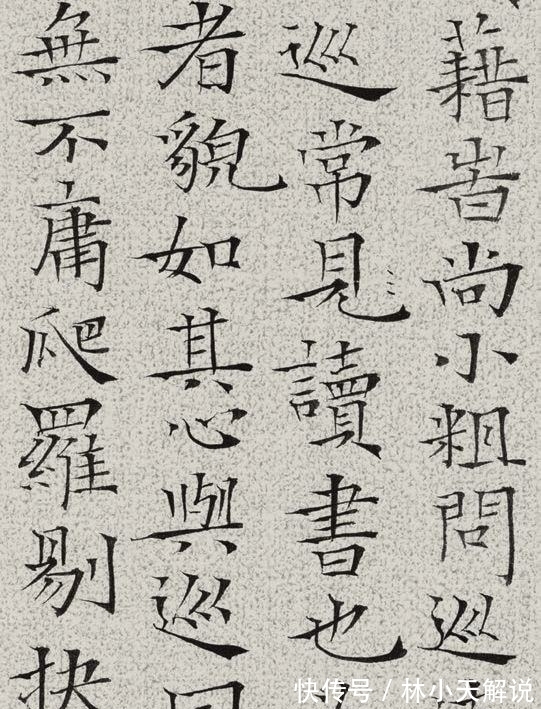 藉旹尚小粗問巡
巡常見讀書也
者貌如其心與巡
無不庸爬羅剔抉
快传号 / 林小天解说